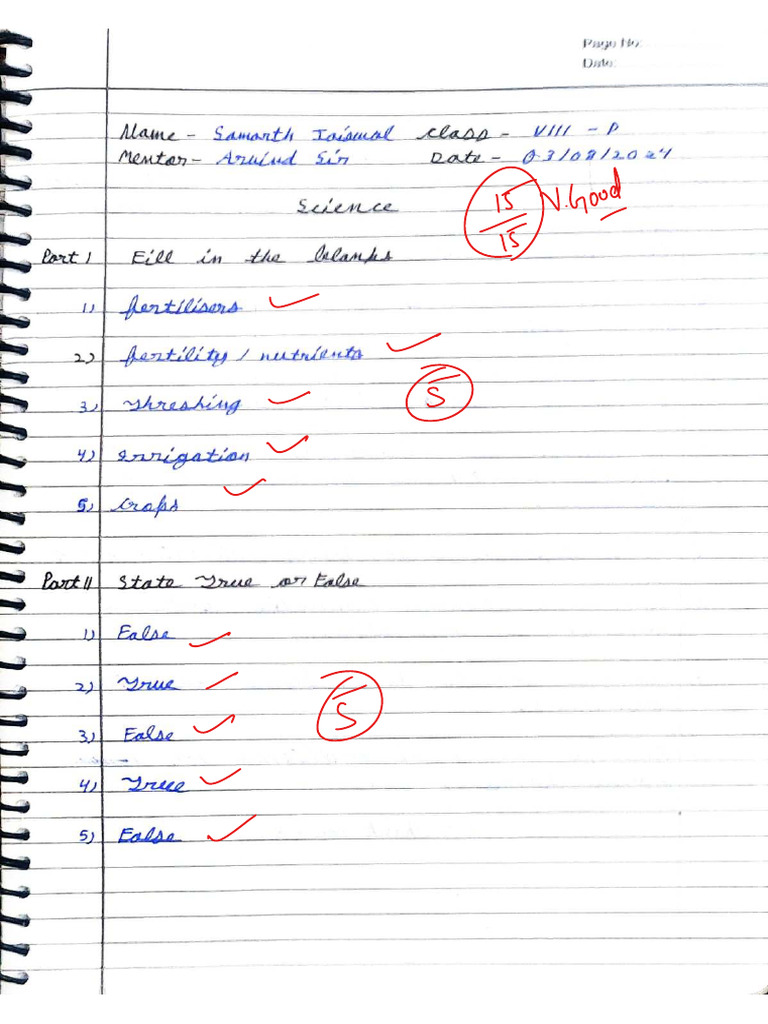 Page No:
Date:
Name - Samarth Jaiswal Class - VIII - P
Mentor - Arvind Sir Date - 03/08/2024
Science 15/15 V.Good
Part I Fill in the blanks
1) fertilisers
2) fertility / nutrients
3) Threshing 5
4) Irrigation
5) Crops
Part II State True or False
1) False
2) True
3) False 5
4) True
5) False